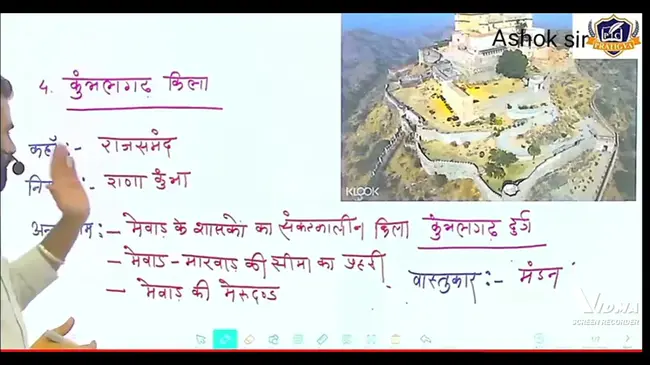 Ashok sir
PRATIGYA
4. कुंभलगढ़ किला
कहाँ :- राजसमंद
:- राणा कुंभा
:- मेवाड़ के शासकों का संकटकालीन किला कुंभलगढ़ दुर्ग
- मेवाड़-मारवाड़ की सीमा का प्रहरी
- मेवाड़ की मेरुदण्ड
वास्तुकार :- मंडन
KLOOK
VIDMA
SCREEN RECORDER